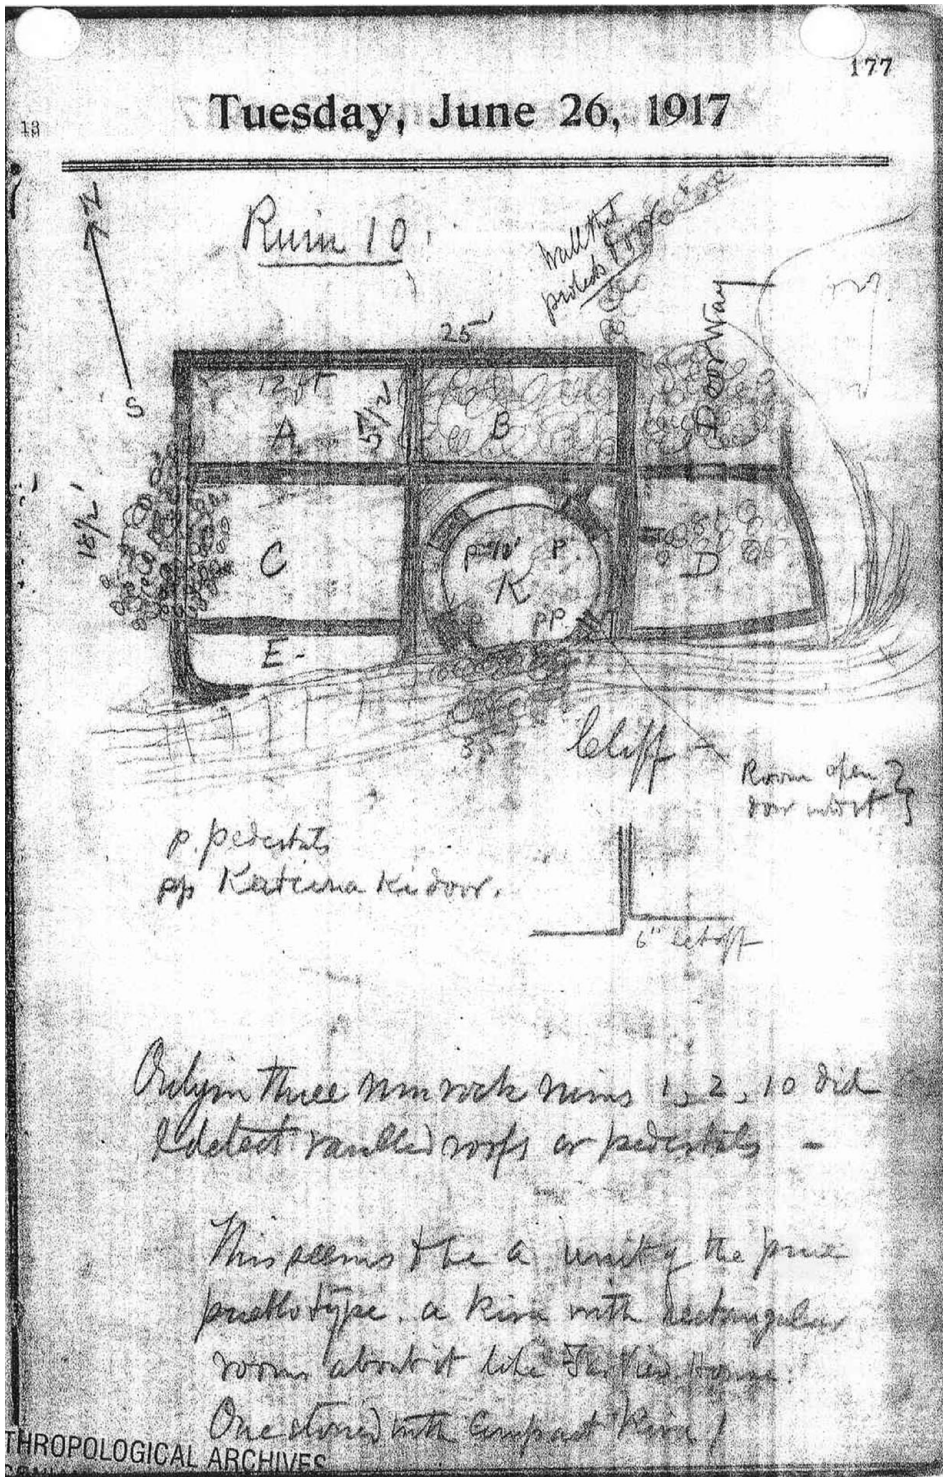 177
Tuesday, June 26, 1917
13
N
Ruin 10
Wall that
protects
25'
Door Way
S
12 ft
A
5 1/2'
B
18 1/2'
C
p
10'
P.
K
D
PP.
E -
35
Cliff
Room open
p. pedestals
pp Katcina Ki door.
6" setoff
Only in three rim rock ruins 1, 2, 10 did
I detect vaulted roofs or pedestals -
This seems to be a unit of the pure
pueblo type. a Kiva with rectangular
rooms about it like Far View House.
One storied with Compact Kiva!
THROPOLOGICAL ARCHIVES